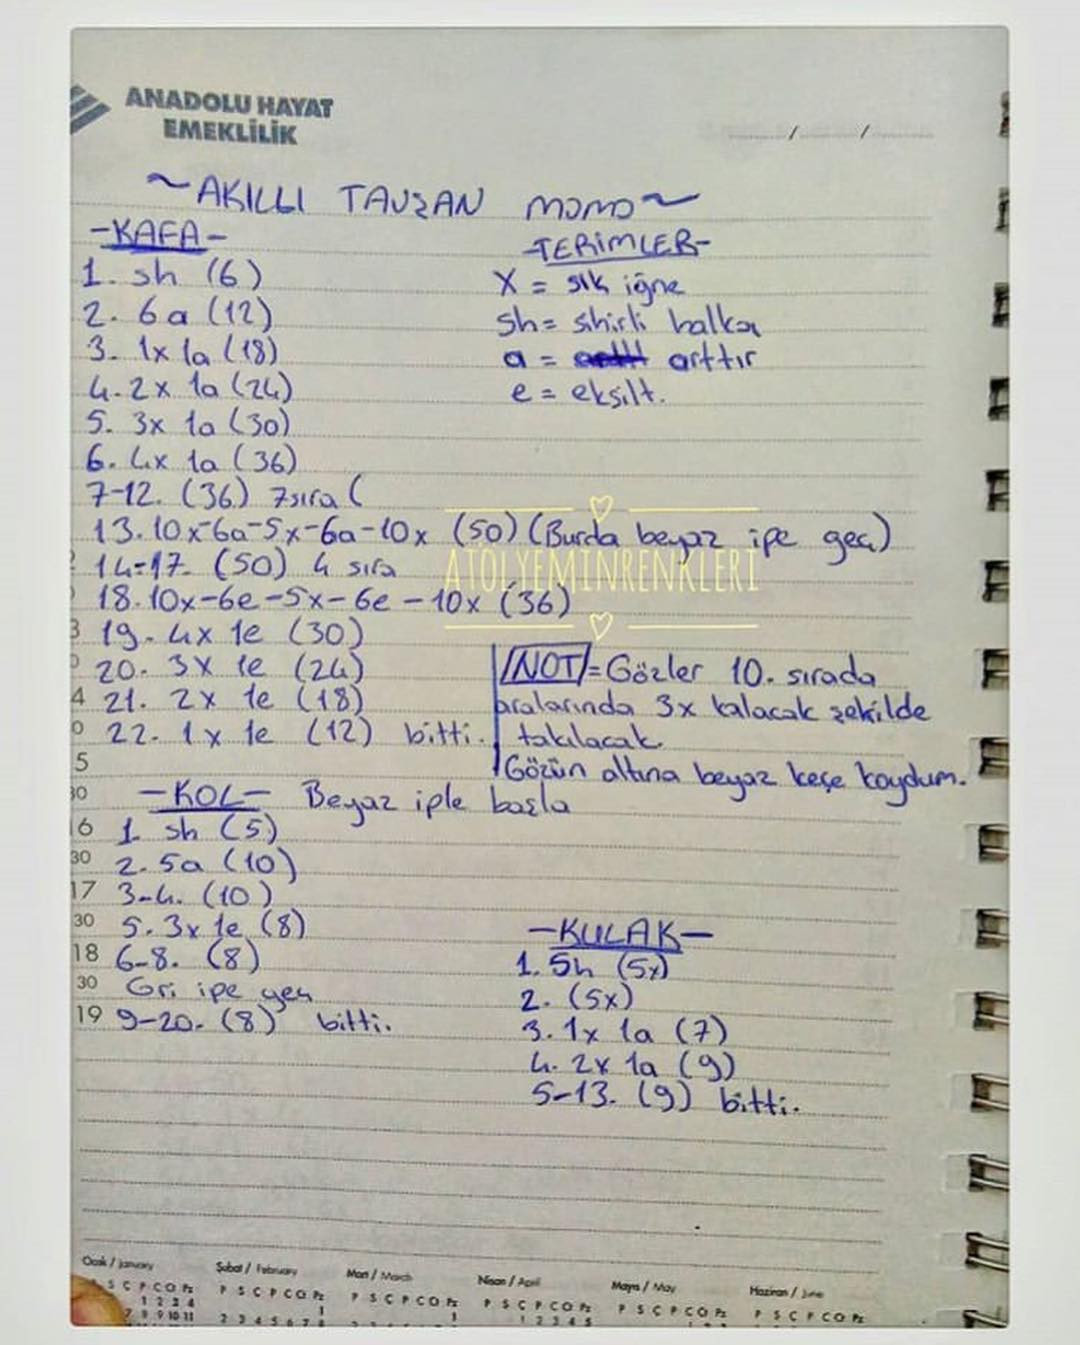 ANADOLU HAYAT
EMEKLİLİK
/ /
~AKILLI TAVŞAN MOMO~
-KAFA-
1. sh (6)
2. 6a (12)
3. 1x 1a (18)
4. 2x 1a (24)
5. 3x 1a (30)
6. 4x 1a (36)
7-12. (36) 7sıra (
13. 10x-6a-5x-6a-10x (50) (Burda beyaz ipe geç)
14-17. (50) 4 sıra
18. 10x-6e-5x-6e-10x (36)
19. 4x 1e (30)
20. 3x 1e (24)
21. 2x 1e (18)
22. 1x 1e (12) bitti.
-TERİMLER-
X = sık iğne
sh= sihirli halka
a = arttır
e = eksilt.
ATÖLYEMINRENKLERI
NOT = Gözler 10. sırada
aralarında 3x kalacak şekilde
takılacak.
Gözün altına beyaz keçe koydum.
-KOL- Beyaz iple başla
1. sh (5)
2. 5a (10)
3-4. (10)
5. 3x 1e (8)
6-8. (8)
Gri ipe geç
9-20. (8) bitti.
-KULAK-
1. Sh (5x)
2. (5x)
3. 1x 1a (7)
4. 2x 1a (9)
5-13. (9) bitti.
30
17
30
18
30
19
Ocak / January
Şubat / February
Mart / March
Nisan / April
Mayıs / May
Haziran / June
S Ç P C C Pz
P S Ç P C C Pz
P S Ç P C C Pz
P S Ç P C C Pz
P S Ç P C C Pz
P S Ç P C C Pz
1 2 3 4
7 8 9 10 11
1
2 3 4 5 6 7 8
1
1 2 3 4 5